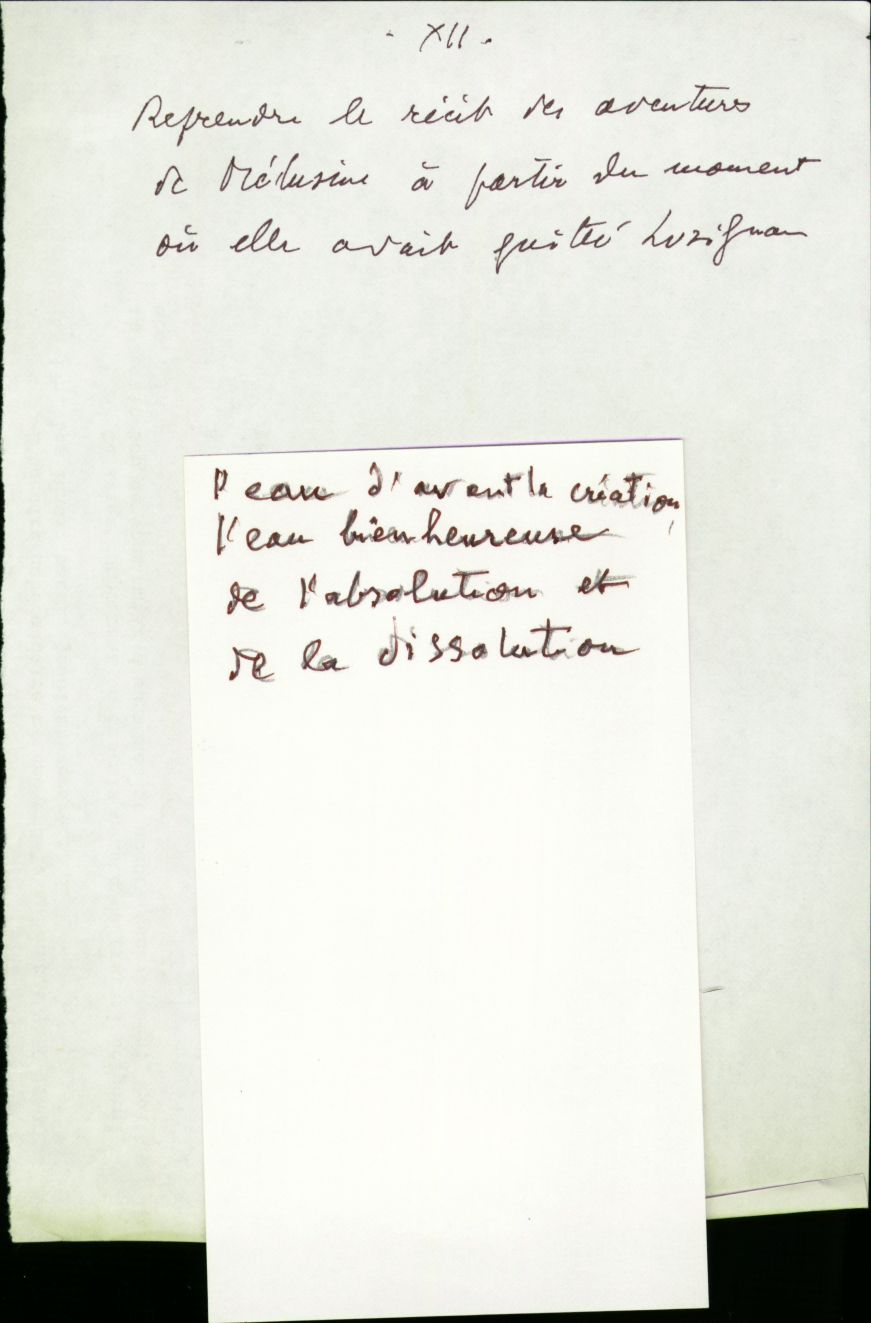 - XII -
Reprendre le récit des aventures
de Mélusine à partir du moment
où elle avait quitté Lusignan
l'eau d'avant la création,
l'eau bienheureuse
de l'absolution et
de la dissolution